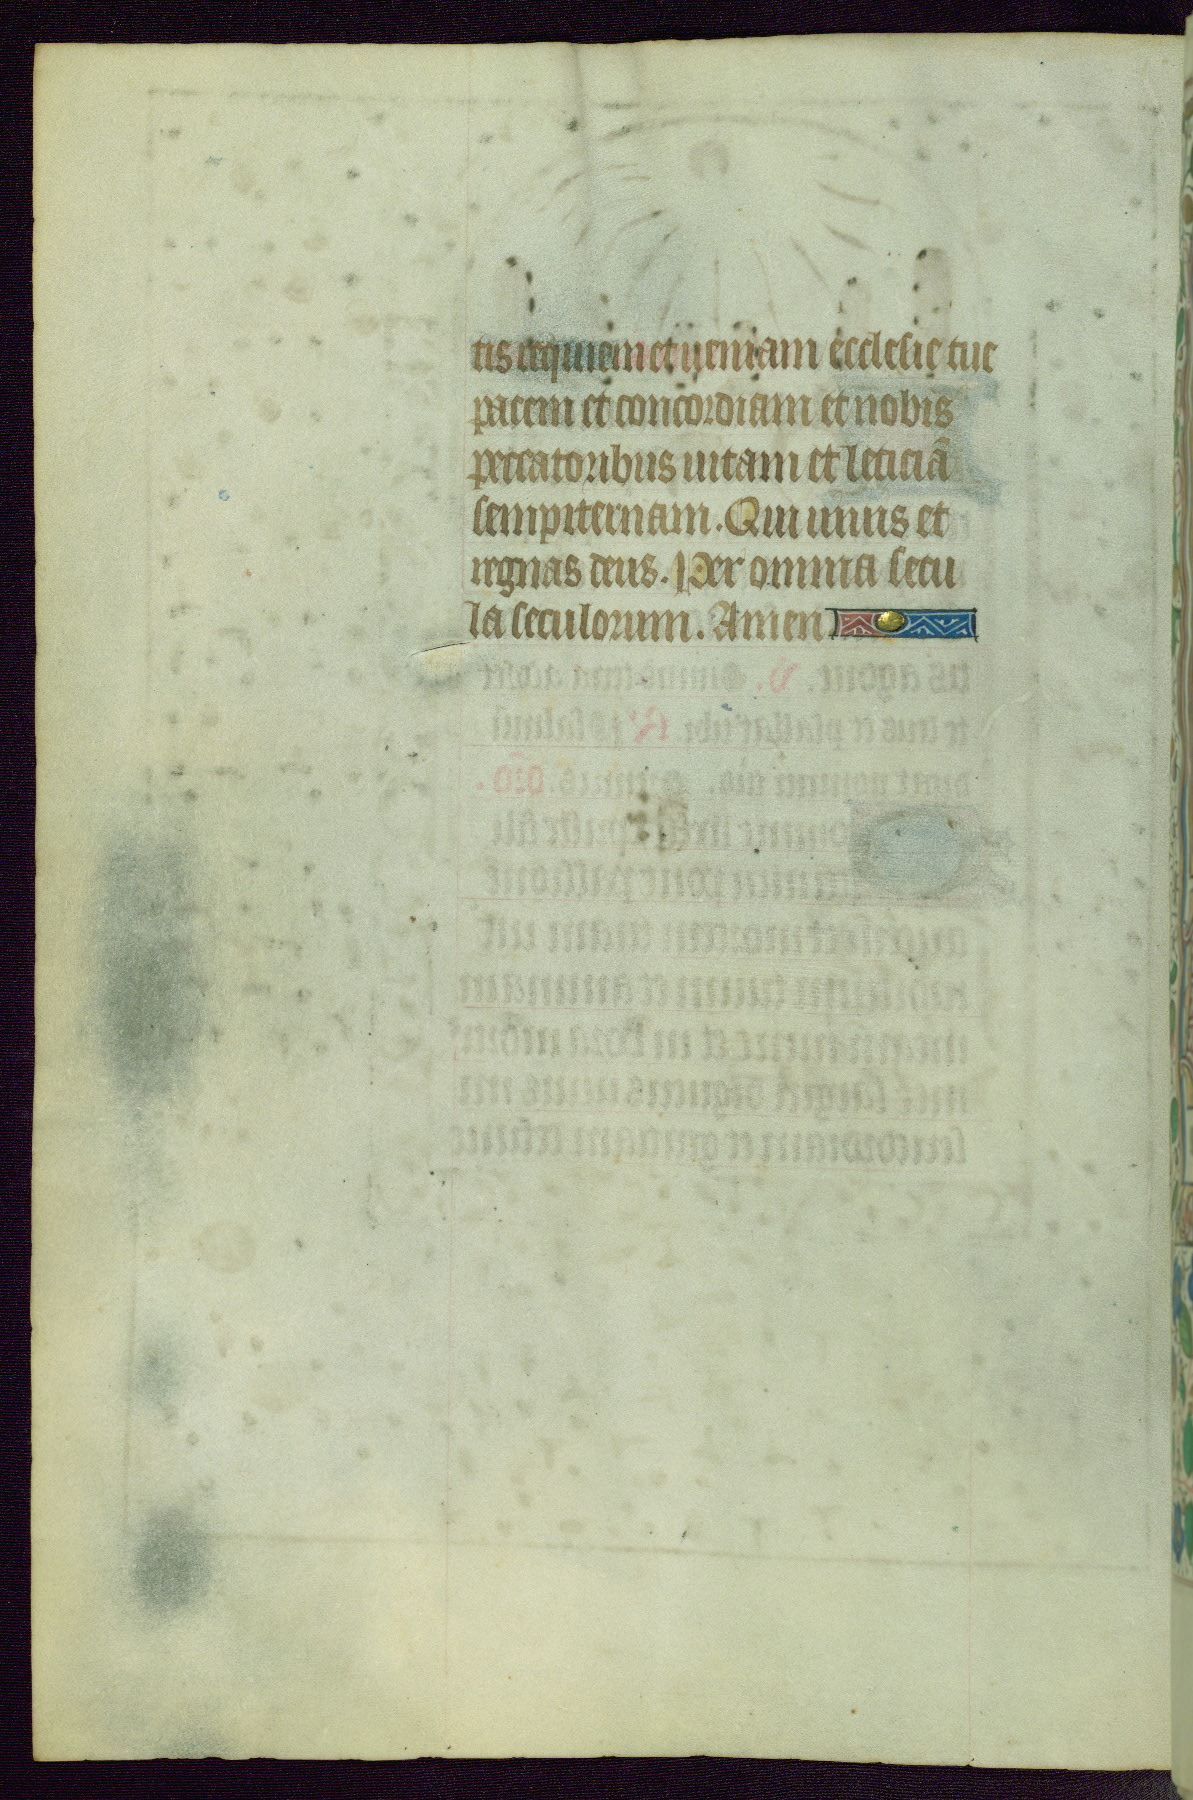 tis requiem et ueniam ecclesie tue
pacem et concordiam et nobis
peccatoribus uitam et leticiā
sempiternam. Qui uiuis et
regnas deus. Per omnia secu
la seculorum. Amen